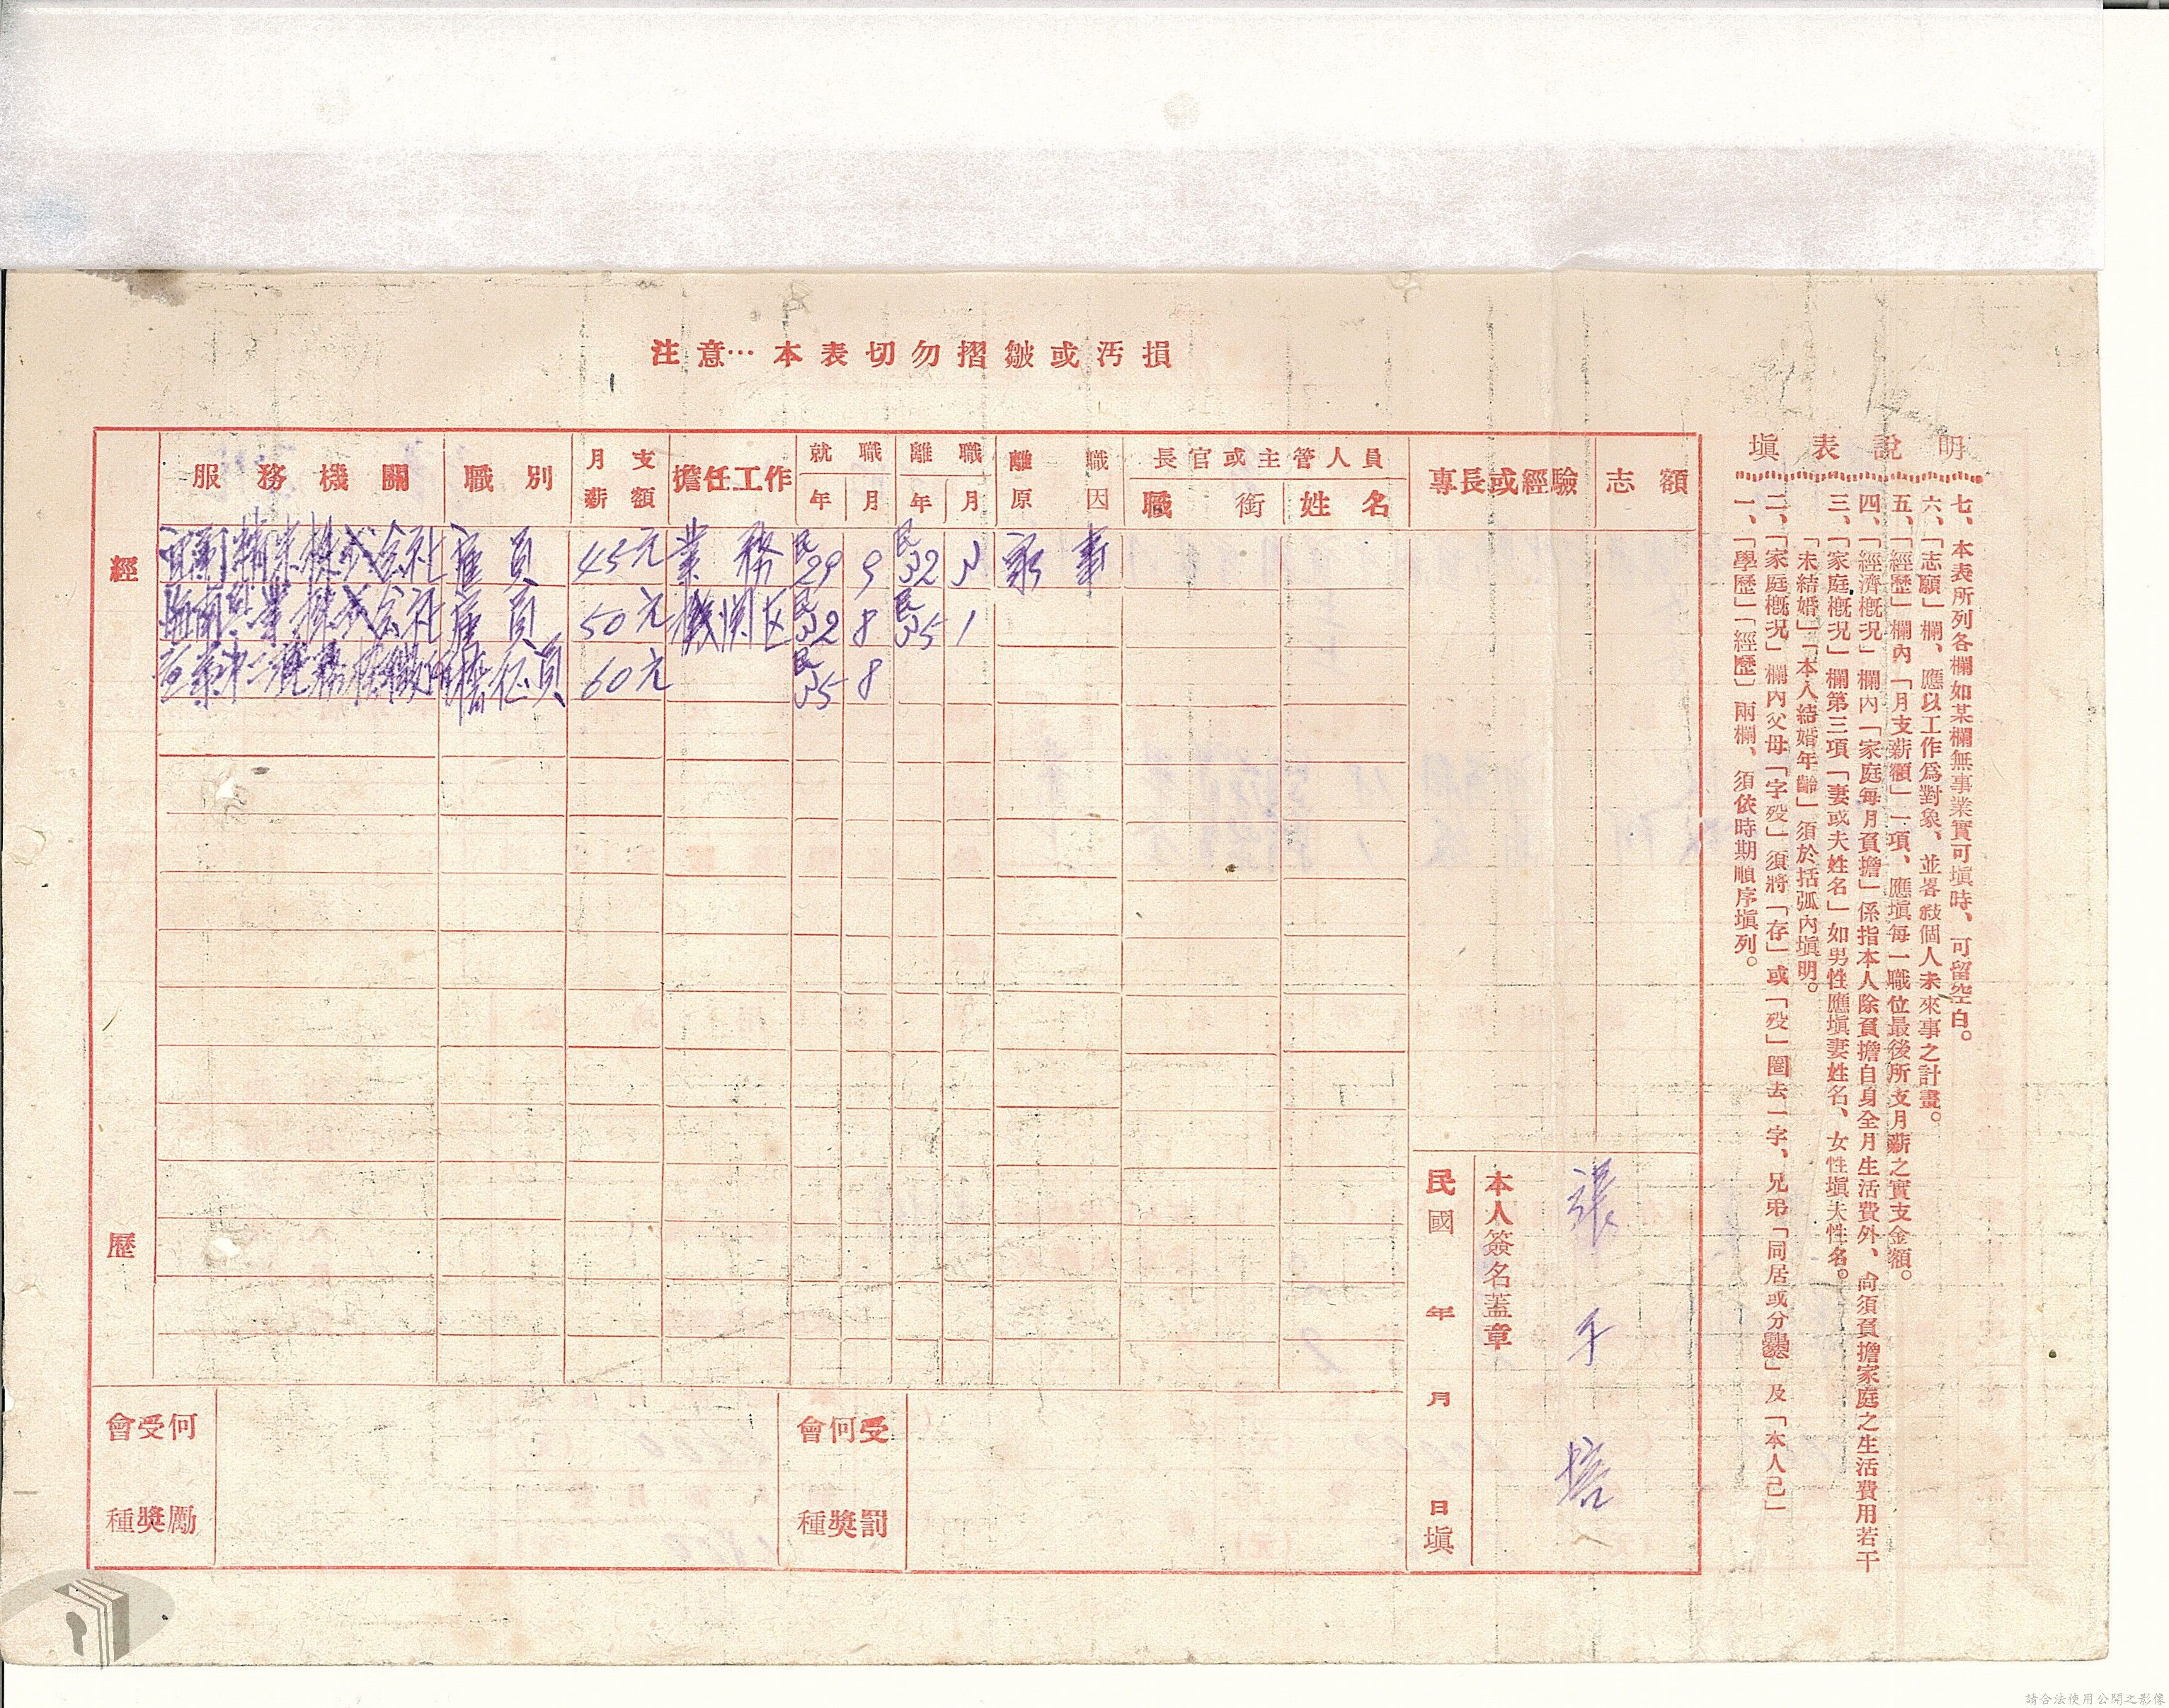 注意…本表切勿摺皺或汚損
填表說明
一、「學歷」「經歷」兩欄、須依時期順序填列。
二、「家庭概況」欄內父母「字歿」須將「存」或「歿」圈去一字、兄弟「同居或分爨」及「本人已」
「未結婚」「本人結婚年齡」須於括弧內填明。
三、「家庭概況」欄第三項「妻或夫姓名」如男性應填妻姓名、女性填夫性名。
四、「經濟概況」欄內「家庭每月負擔」係指本人除負擔自身全月生活費外、尙須負擔家庭之生活費用若干
五、「經歷」欄內「月支薪額」一項、應填每一職位最後所支月薪之實支金額。
六、「志願」欄、應以工作爲對象、並畧敍個人未來事之計畫。
七、本表所列各欄如某欄無事業實可填時、可留空白。
經歷
服務機關 職別 月支薪額 擔任工作 就職 年 月 離職 年 月 離職原因 長官或主管人員 職銜 姓名 專長或經驗 志額
精米株式会社 雇員 45元 業務 民29 9 民32 3 家事
業株式会社 雇員 50元 民32 8 民35 1
60元 民35 8
本人簽名蓋章 張 千
民國 年 月 日填
會受何種獎勵
會何受種獎罰
請合法使用公開之影像